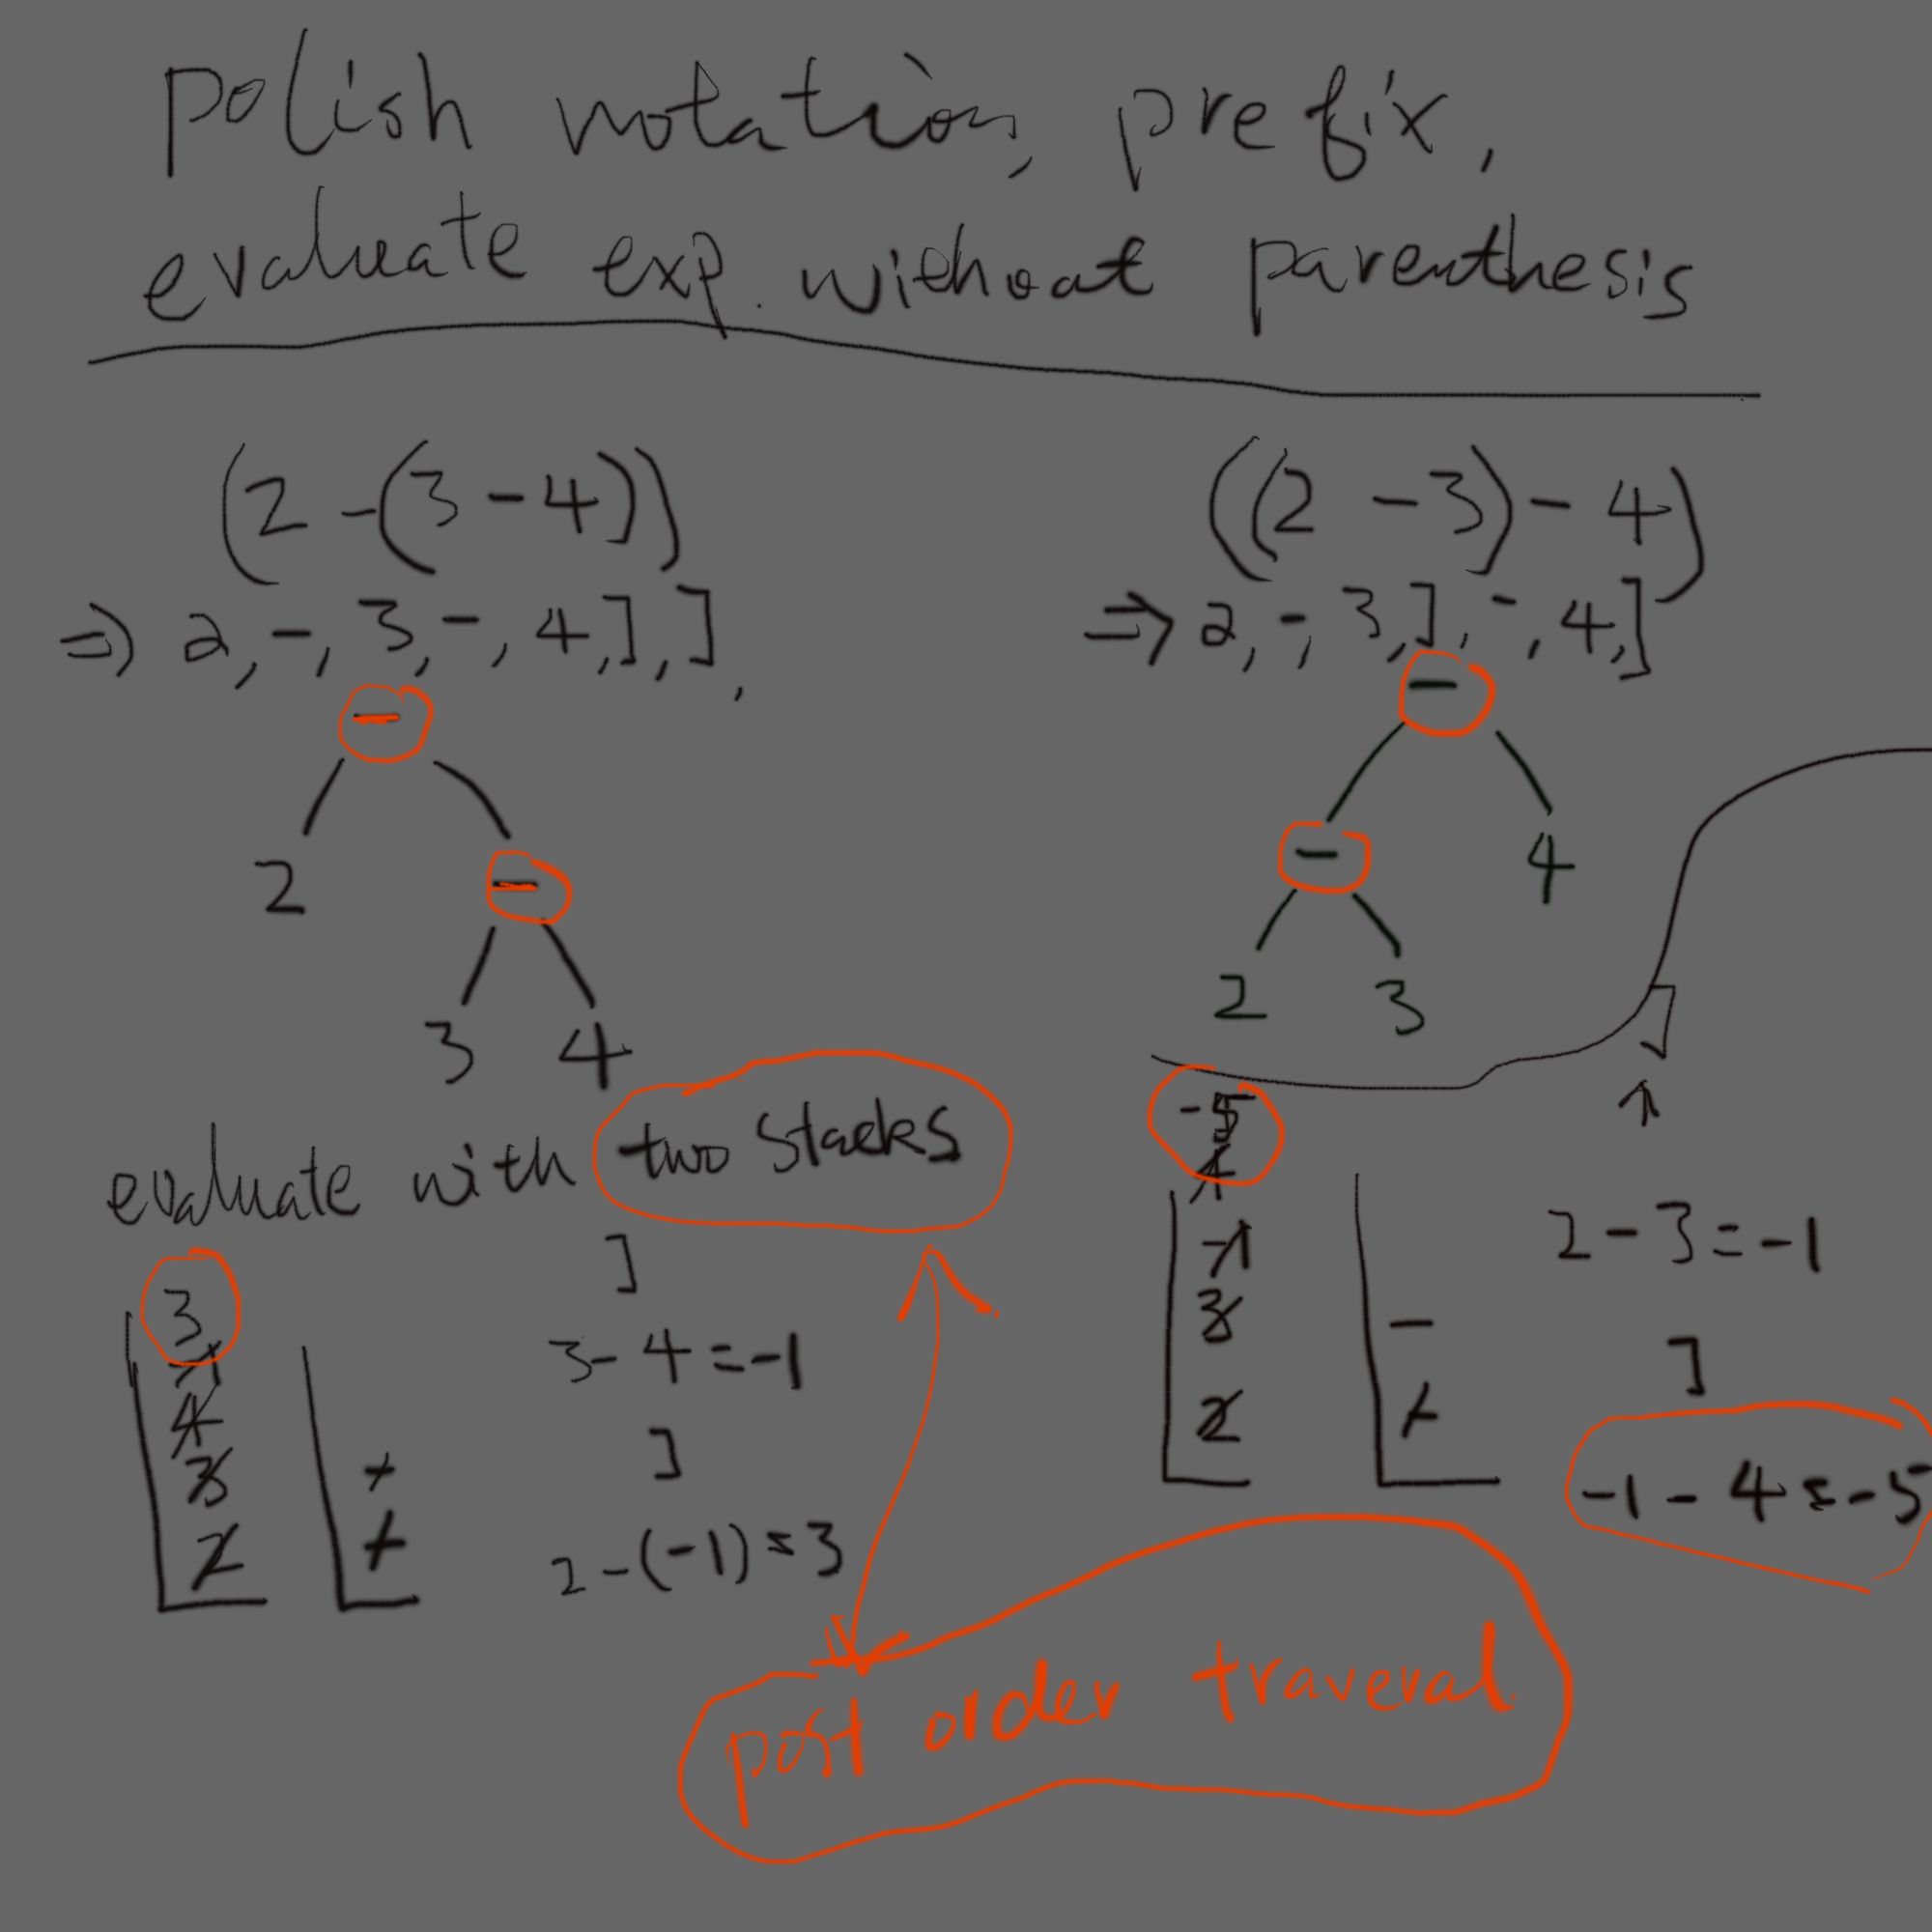 polish notation, prefix,
evaluate exp. without parenthesis
(2-(3-4))
⇒ 2,-,3,-,4,],],
-
2
-
3 4
((2-3)-4)
⇒ 2,-,3,],-,4,]
-
-
4
2 3
evaluate with two stacks
]
3
3-4=-1
-1
4
]
3
-
2
-
2-(-1)=3
-5
4
-1
2-3=-1
3
-
]
2
-
-1-4=-5
post order traveral